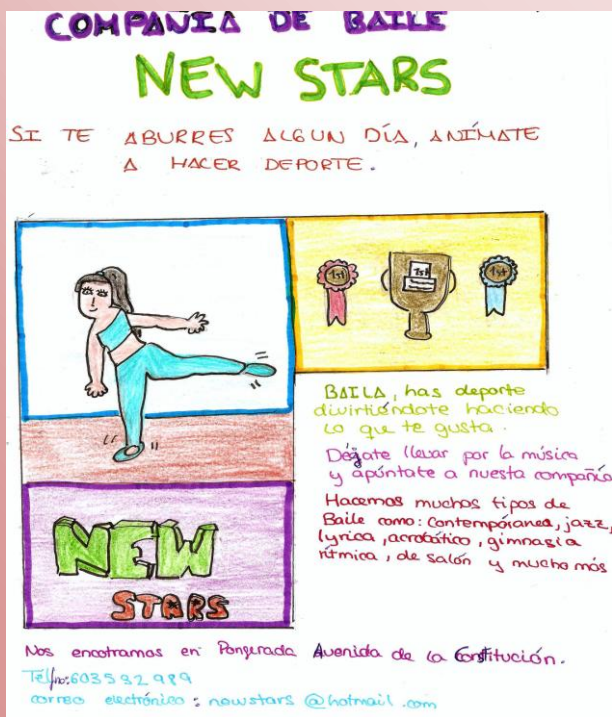 COMPAÑIA DE BAILE
NEW STARS
SI TE ABURRES ALGUN DÍA, ANÍMATE
A HACER DEPORTE.
1st 1st 1st
BAILA, has deporte
divirtiéndote haciendo
lo que te gusta.
Déjate llevar por la música
y apúntate a nuesta compañía
Hacemos muchos tipos de
Baile como: Contempóranea, jazz,
lyrica, acrobático, gimnasia
rítmica, de salón y mucho más
NEW
STARS
Nos encotramos en Ponferrada Avenida de la Constitución.
Telfno: 603592989
correo electrónico: newstars@hotmail.com